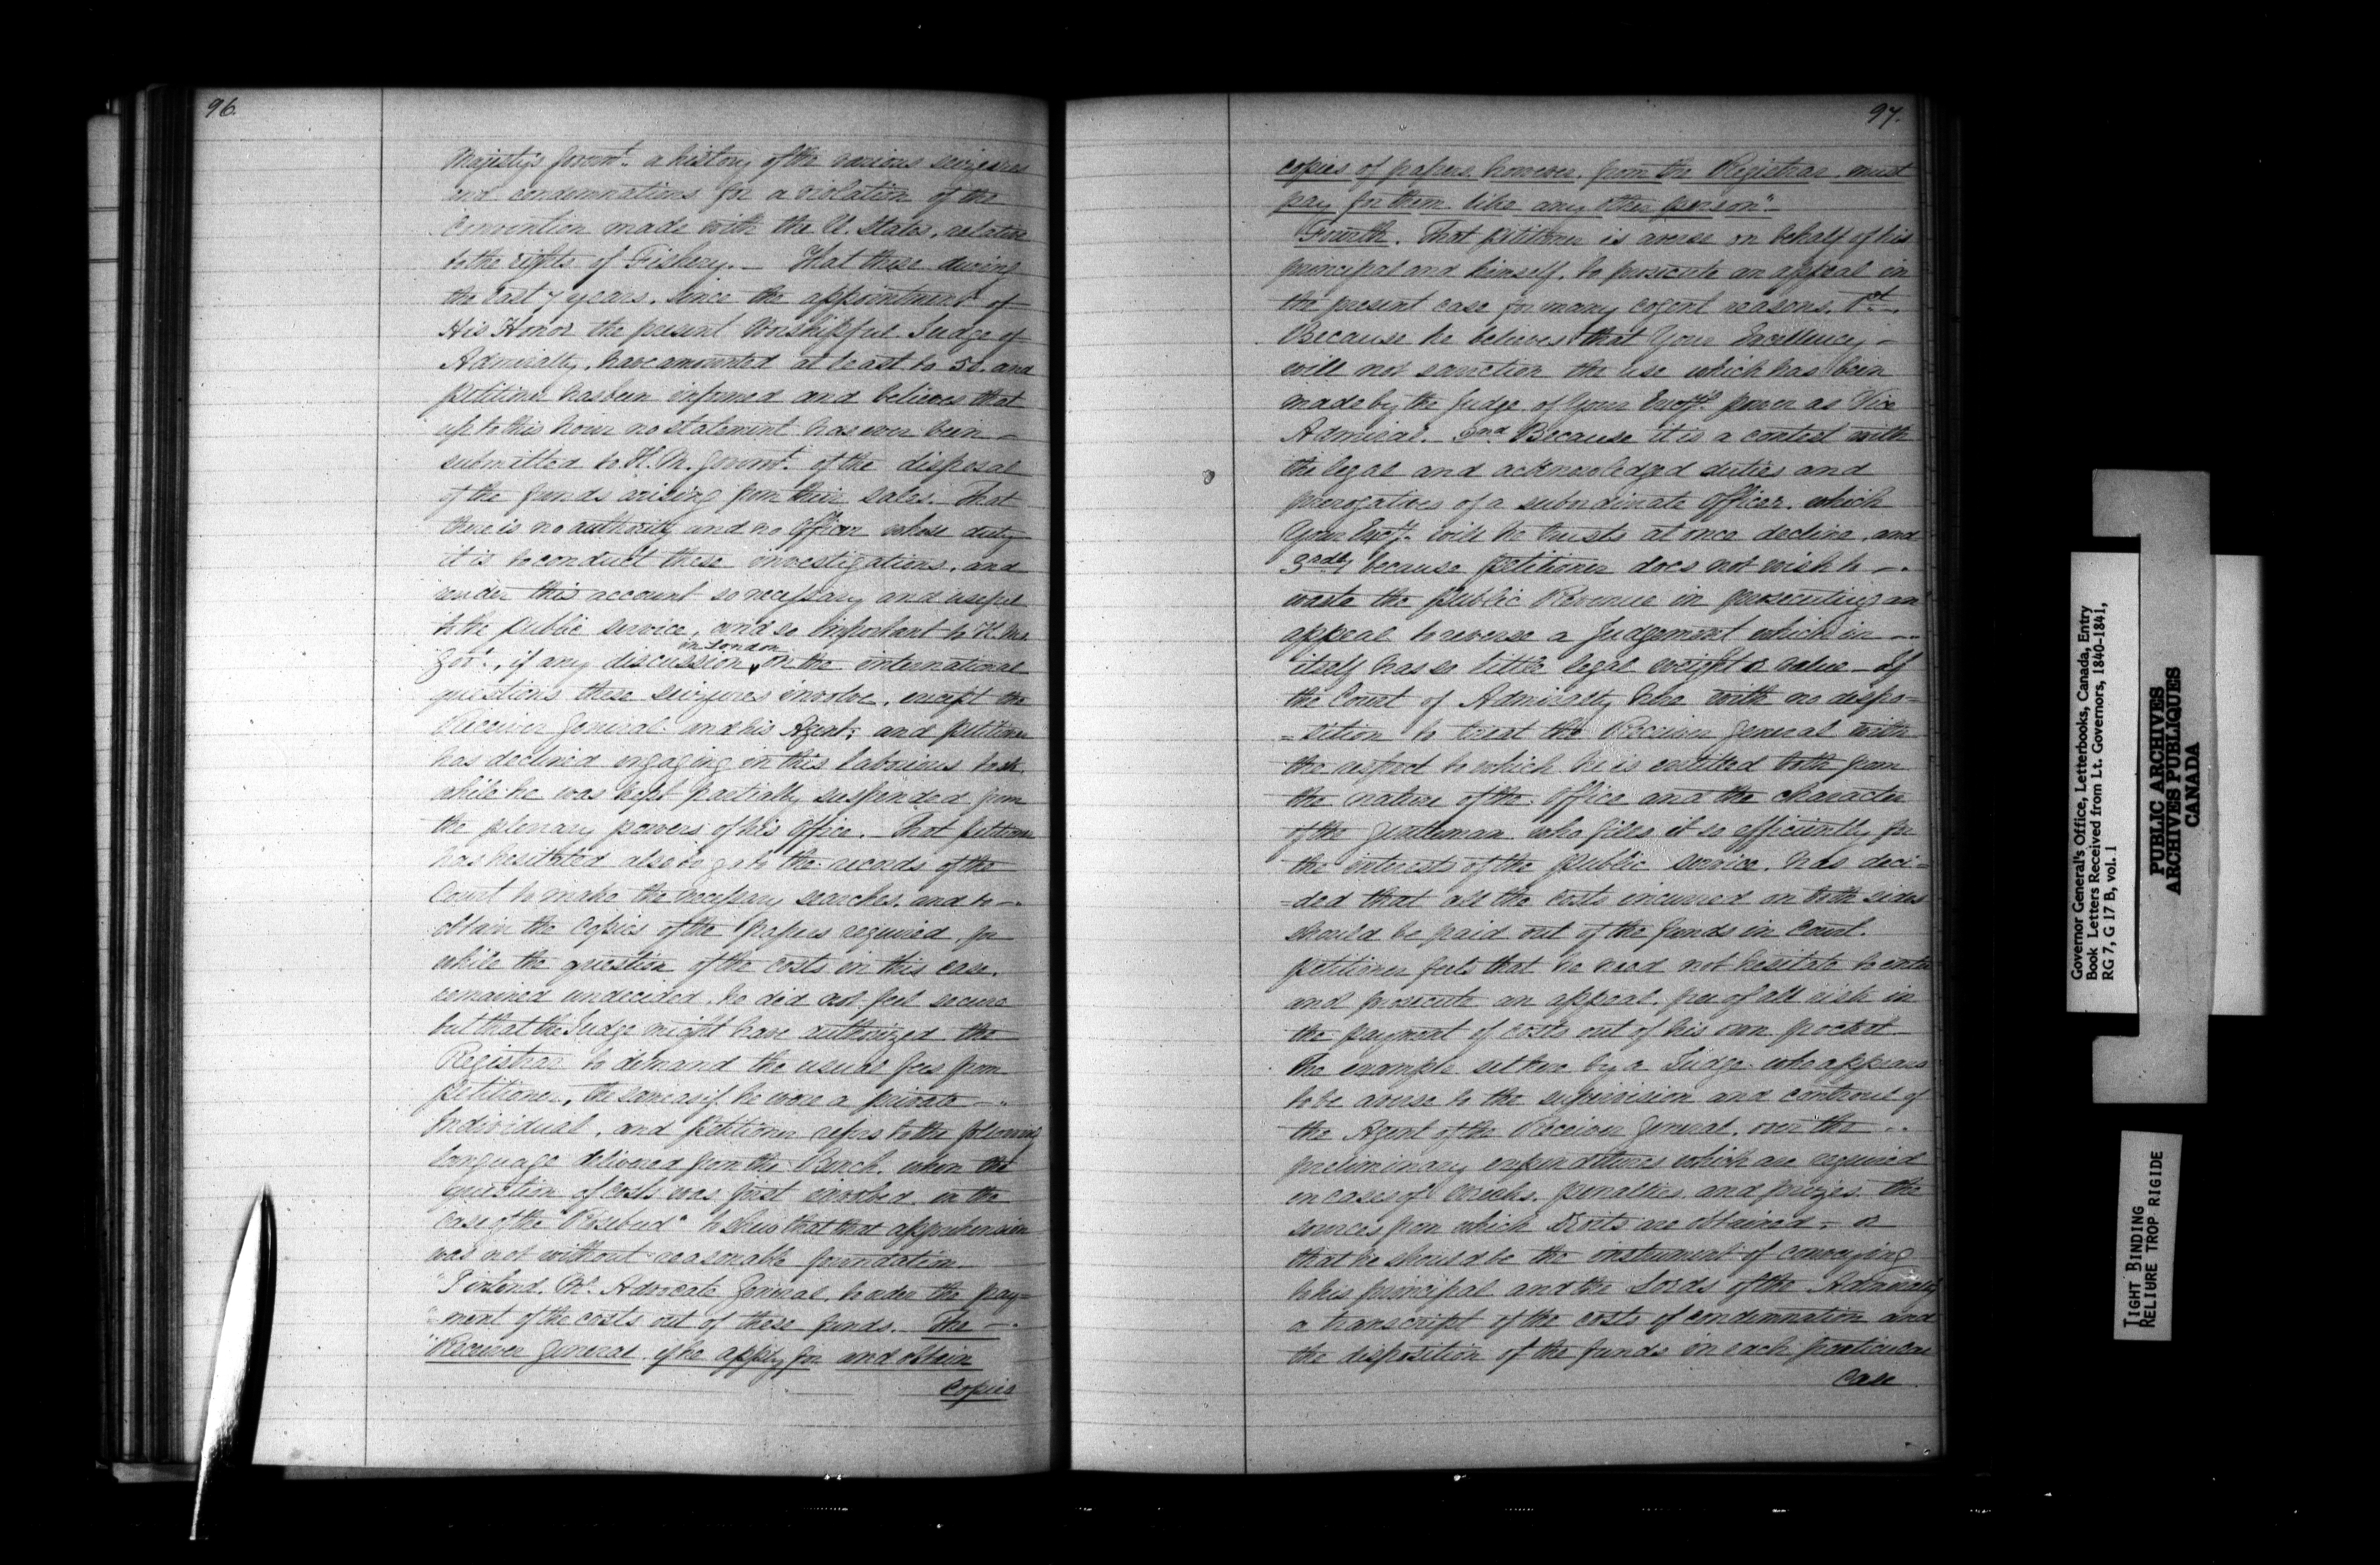 96.
Majesty's Governt. a history of the various seizures
and condemnations for a violation of the
Convention made with the U. States, relative
to the rights of Fishery. — That these during
the last 7 years, since the appointment of
His Honor the present Worshipful Judge of
Admiralty, have amounted at least to 50. and
petitioner has been informed and believes that
up to this hour no statement has ever been –
submitted to H. M. Governt. of the disposal
of the funds arising from their sales. That
there is no authority and no Officer whose duty
it is to conduct these investigations, and
render this account so necessary and useful
to the public service, and so important to H. Ms.
in London
Govt., if any discussion, on the international
questions these seizures involve, except the
Receiver General and his Agent; and petitioner
has declined engaging in this laborious task
while he was kept partially suspended from
the plenary powers of his Office. – That petitioner
has hesitated also to go to the records of the
Court to make the necessary searches, and to –.
obtain the copies of the papers required, for
while the question of the costs in this case,
remained undecided, he did not feel secure
but that the Judge might have authorized the
Registrar to demand the usual fees from
petitioner, the same as if he were a private –.
Individual, and petitioner refers to the following
language delivered from the Bench, when the
question of costs was first involved in the
case of the "Rosebud" to shew that that apprehension
was not without reasonable foundation
"I intend, Mr. Advocate General, to order the pay=
"ment of the costs out of these funds. The –.
"Receiver General if he apply for and obtain
Copies
97.
copies of papers, however, from the Registrar, must
pay for them like any other person"–
Fourth. That petitioner is averse on behalf of his
principal and himself, to prosecute an appeal in
the present case for many cogent reasons. 1st.
Because he believes that Your Excellency –
will not sanction the use which has been
made by the Judge of Your Excys. power as Vice
Admiral. 2nd Because it is a contest with
the legal and acknowledged duties and
prerogatives of a subordinate Officer, which
Your Excy. will he trusts at once decline, and
3rdly because petitioner does not wish to –.
waste the public Revenue in prosecuting an
appeal to reverse a Judgement which in –..
itself has so little legal weight or value – If
the Court of Admiralty here with no dispo=
=sition to treat the Receiver General with
the respect to which he is entitled both from
the nature of the Office and the character
of the gentleman who files it so efficiently for
the interests of the public service, has deci=
=ded that all the costs incurred on both sides
should be paid out of the funds in Court.
petitioner feels that he need not hesitate to enter
and prosecute an appeal, free of all risk in
the payment of costs out of his own pocket
The example set here by a Judge who appears
to be averse to the supervision and controul of
the Agent of the Receiver General, over the ..
preliminary expenditures which are required
in cases of wrecks, penalties, and prizes, the
sources from which Droits are obtained, – or
that he should be the instrument of conveying
to his principal and the Lords of the Admiralty
a transcript of the costs of condemnation and
the disposition of the funds in each particular
Case
Governor General's Office, Letterbooks, Canada, Entry
Book Letters Received from Lt. Governors, 1840-1841,
RG 7, G 17 B, vol. 1
PUBLIC ARCHIVES
ARCHIVES PUBLIQUES
CANADA
TIGHT BINDING
RELIURE TROP RIGIDE